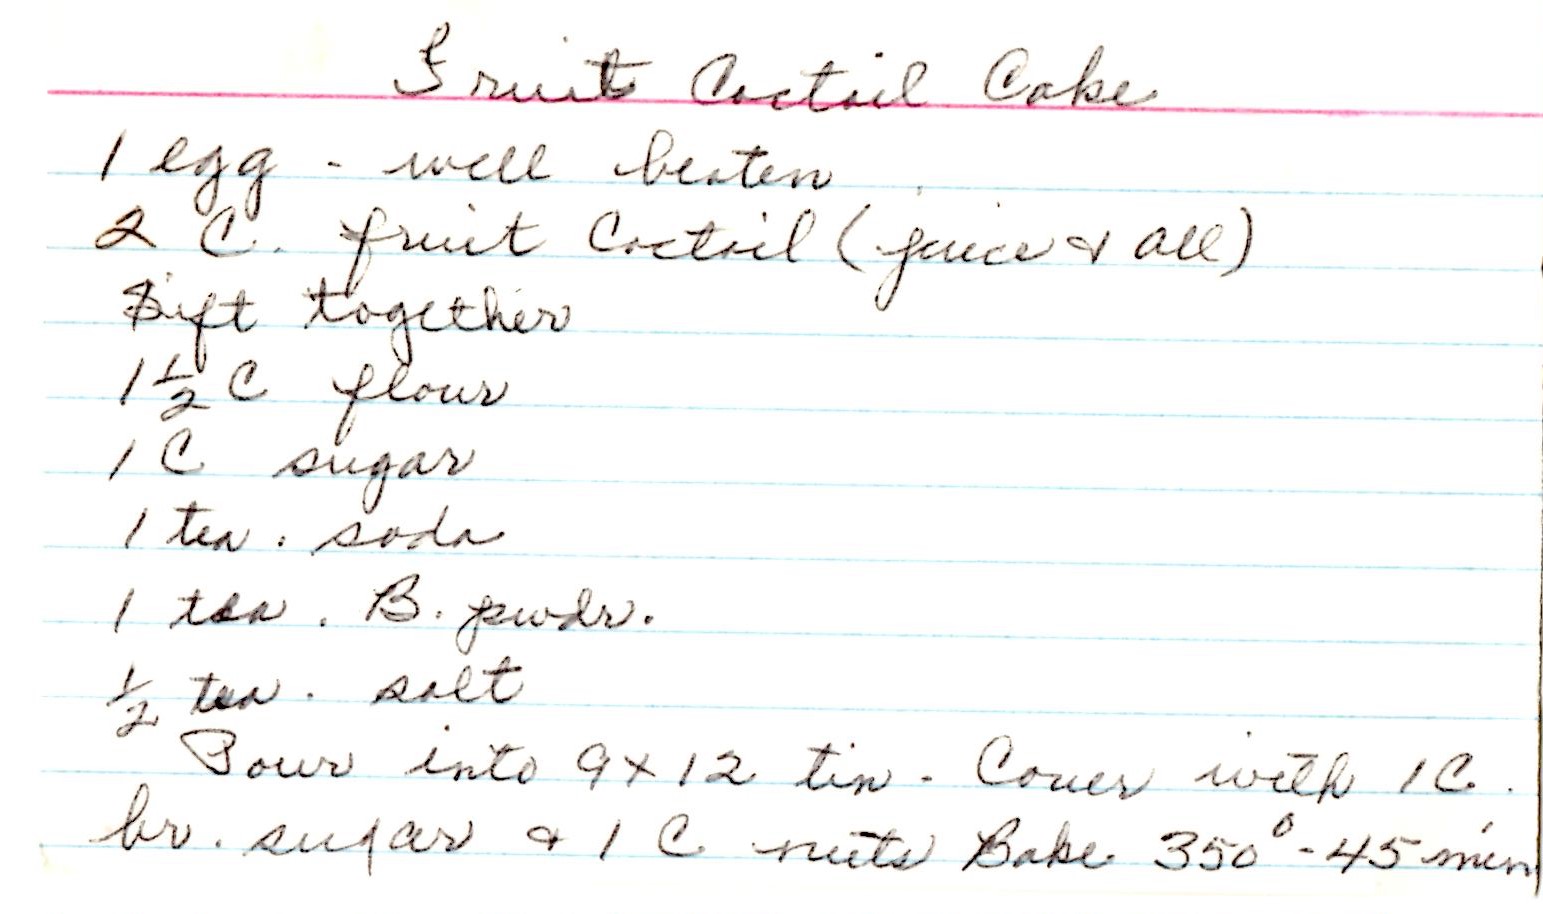 Fruit Coctail Cake
1 egg - well beaten
2 C. fruit Coctail (juice & all)
Sift together
1 1/2 C flour
1 C sugar
1 tea. soda
1 tea. B. pwdr.
1/2 tea. salt
Pour into 9 x 12 tin - Cover with 1 C.
br. sugar & 1 C nuts Bake 350° - 45 min